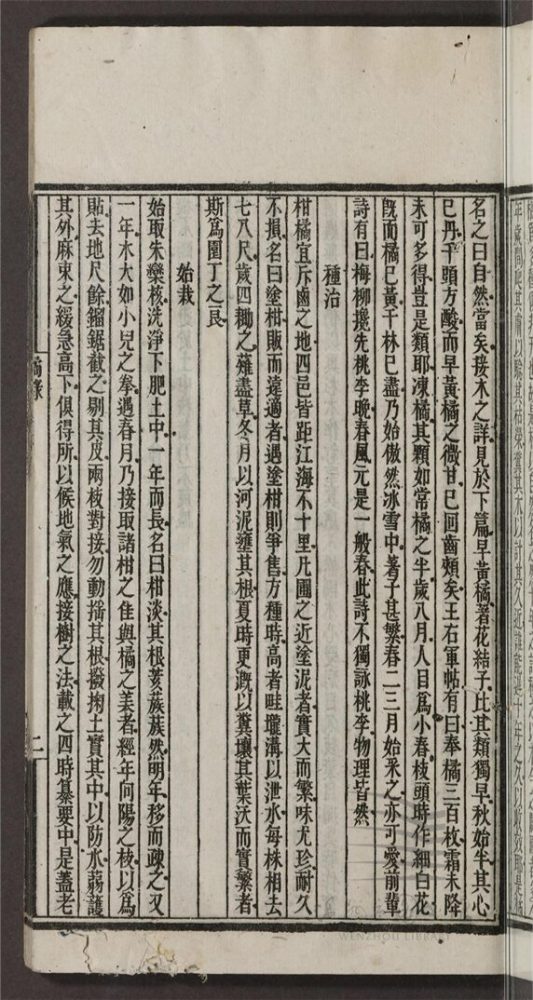 名之曰自然當矣接木之詳見於下篇早黃橘著花結子比其類獨早秋始半其心
已丹千頭方酸而早黃橘之微甘已回齒頰矣王右軍帖有曰奉橘三百枚霜未降
未可多得豈是類耶凍橘其顆如常橘之半歲八月人目爲小春枝頭時作細白花
旣而橘已黃千林已盡乃始傲然冰雪中著子甚繁春二三月始采之亦可愛前輩
詩有曰梅柳攙先桃李晚春風元是一般春此詩不獨詠桃李物理皆然
種治
柑橘宜斥鹵之地四邑皆距江海不十里凡圃之近塗泥者實大而繁味尤珍耐久
不損名曰塗柑販而遠適者遇塗柑則爭售方種時高者畦壠溝以泄水每株相去
七八尺歲四鋤之薙盡草冬月以河泥壅其根夏時更漑以糞壤其葉沃而實繁者
斯爲園丁之良
始栽
始取朱欒核洗淨下肥土中一年而長名曰柑淡其根荄蔟蔟然明年移而疎之又
一年木大如小兒之拳遇春月乃接取諸柑之佳與橘之美者經年向陽之枝以爲
貼去地尺餘鎦鋸截之剔其皮兩枝對接勿動搖其根撥掬土實其中以防水蒻護
其外麻束之緩急高下俱得所以候地氣之應接樹之法載之四時纂要中是蓋老
橘錄
二
WENZHOU LIBRARY